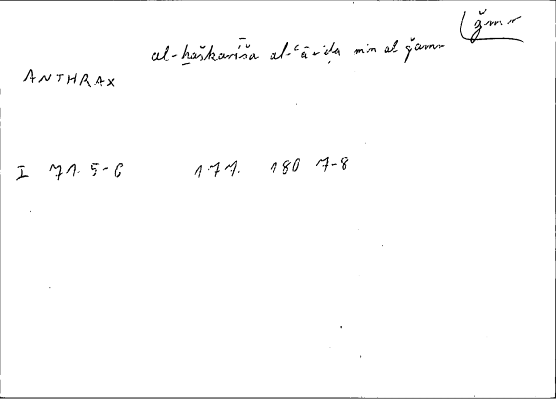 ǧmr
al-ḫaškarīša al-ʿāriḍa min al ǧamr
ANTHRAX
I 71. 5-6 177. 180 7-8